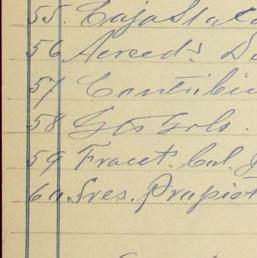 55. Caja
56 Acreed.
57 Contribuc
58 Gts Grls.
59 Fracct. Col.
60 Sres. Propiet